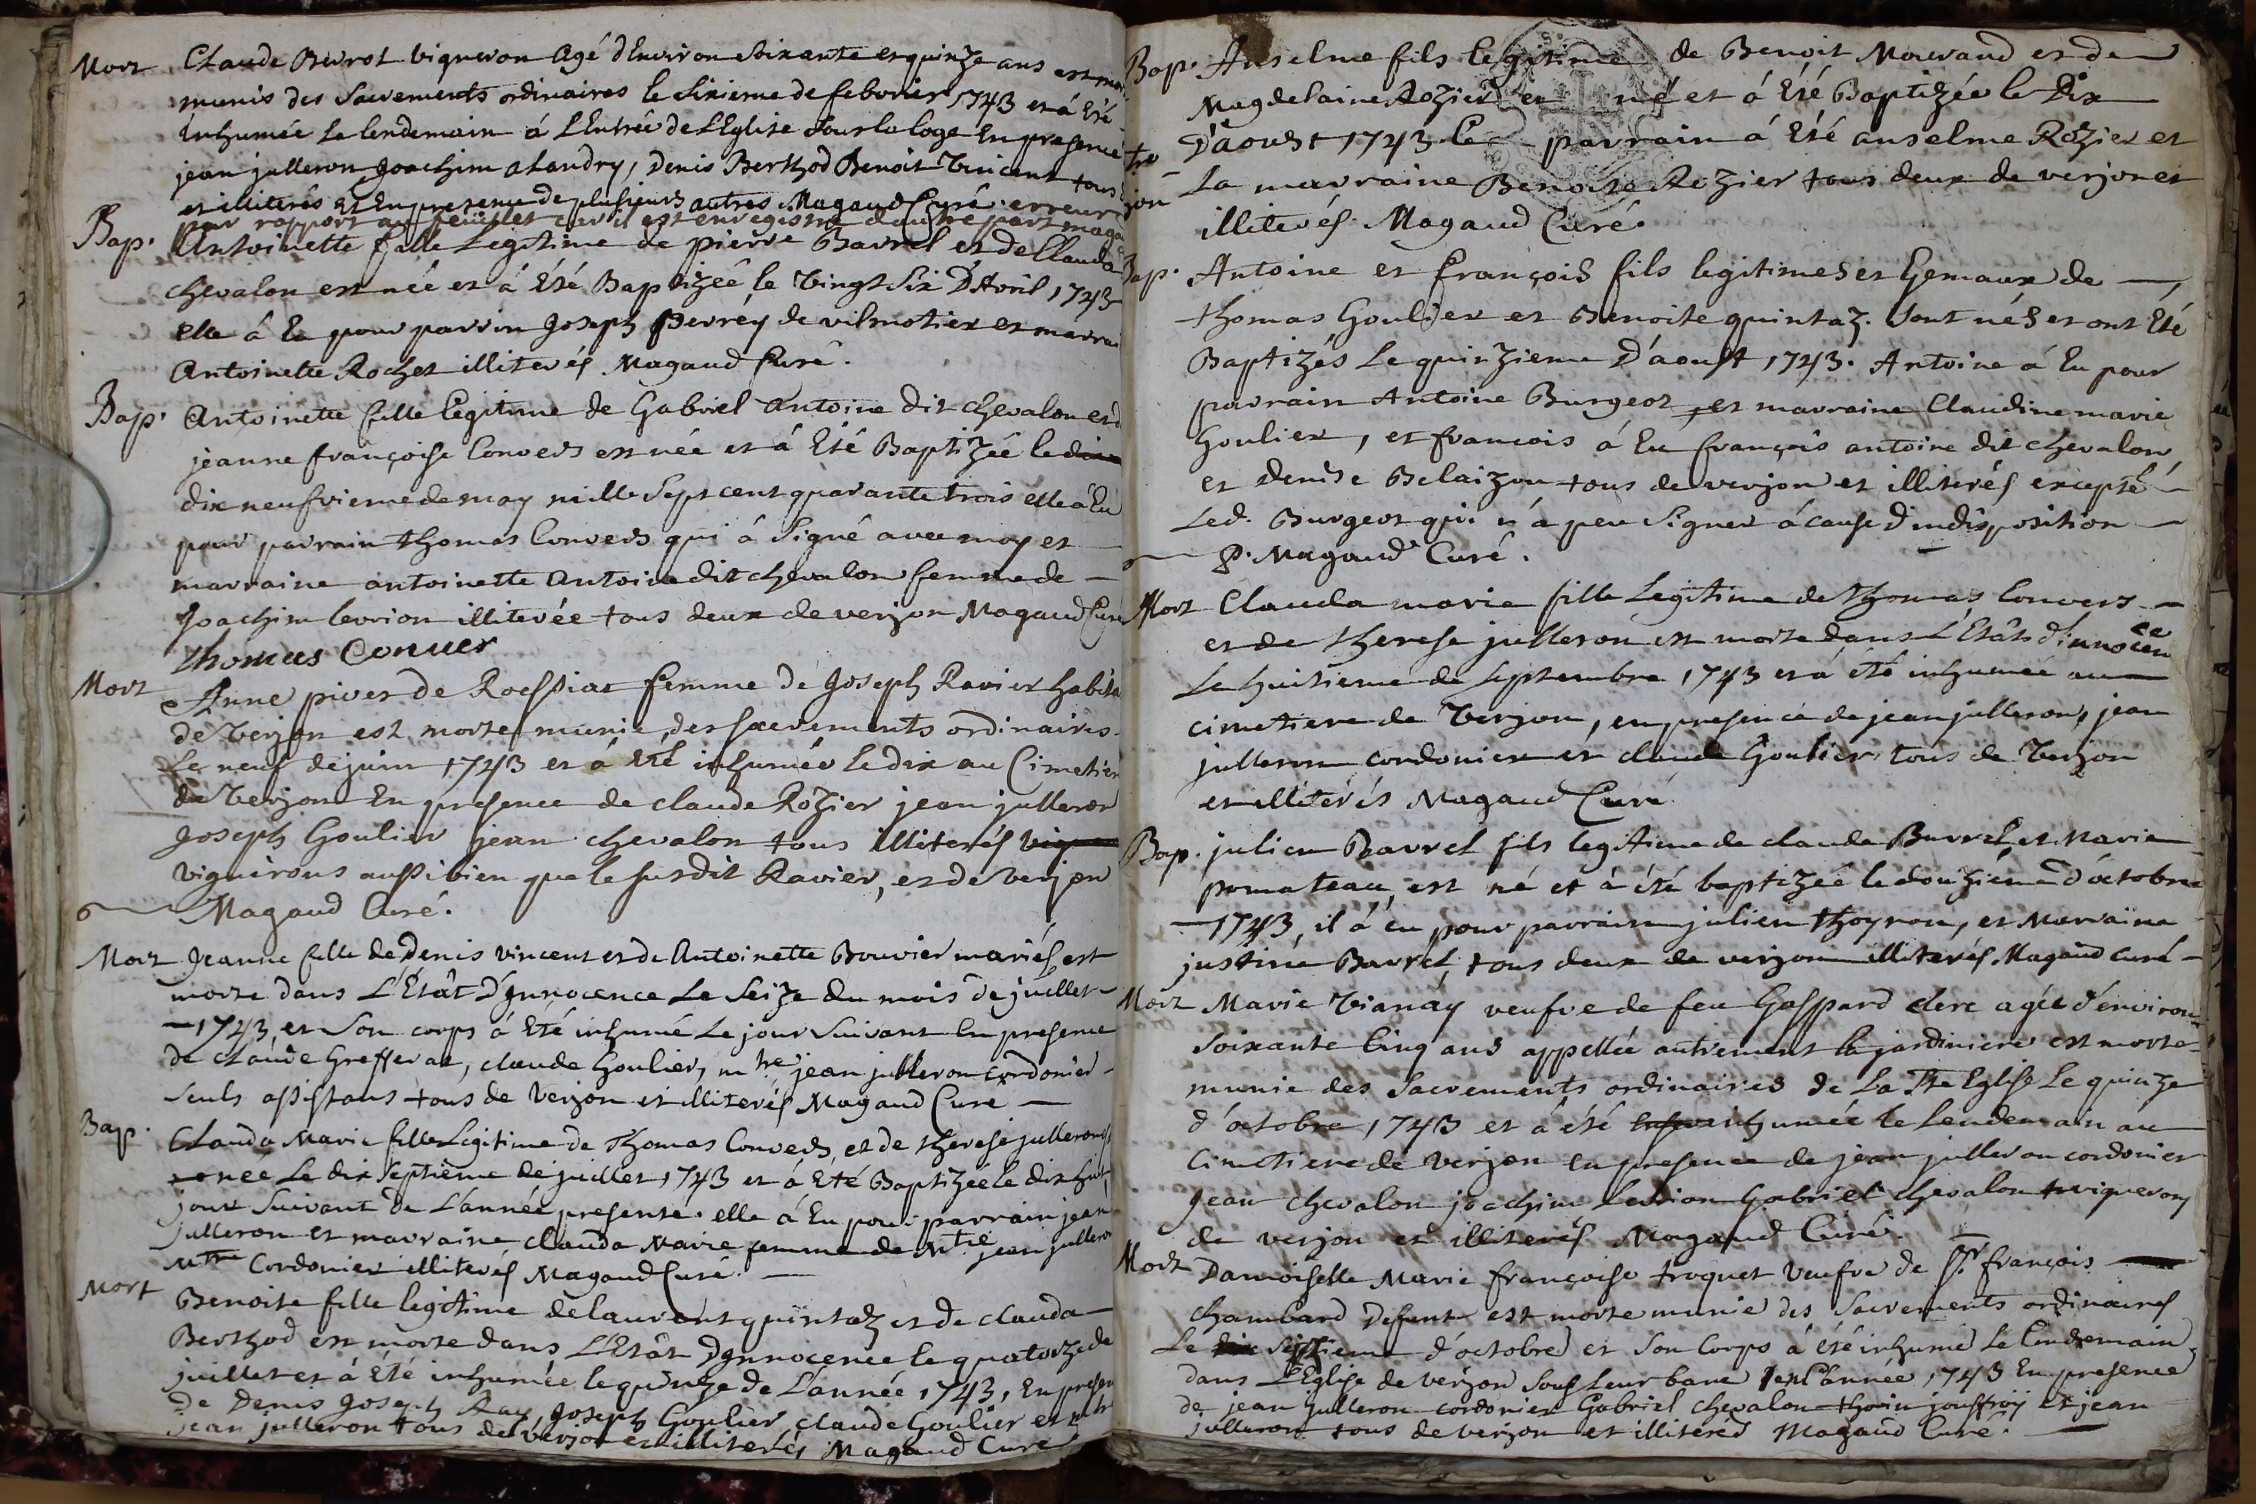 Mort Claude Bevrot vigneron agé d'Environ Soixante et quinze ans est mort
munis des Sacrements ordinaires le Sixieme de febvrier 1743 et á Eté
Inhumée Le lendemain á L'Entrée de L'Eglise Sous la loge En presence
jean julleron Joachim alandry, Denis Berthod Benoit Vincent tous
et illiterés Et En presence de plusieurs autres Magaud Curé. erreur
par rapport au feuillet car il est enregistré d'autre part magaud
Bap. Antoinette fille Legitime de pierre Bavrel et de Clauda
chevalon est néé et á Eté Baptizéé le Vingt Six D'Avril 1743
elle á Eu pour parrin Joseph Perrey de vilmotier et marrai
Antoinette Rochet illiterés Magaud Curé.
Bap. Antoinette fille legitime de Gabriel Antoine dit chevalon et d
jeanne françoise Convers est née et á Eté Baptizée le
dix neufvieme de may mille Sept cent quarante trois elle a Eu
pour parrain thomas Convers qui á Signé avec moy et
marraine antoinette Antoine dit chevalon femme de
Joachim levrion illiterée tous deux de verjon Magaud Curé
thomas Conuer
Mort Anne piver de Roessiat femme de Joseph Ravier habita
de Verjon est morte munie des sacrements ordinaires
Le neuf de juin 1743 et á Eté inhumée le dix au Cimetier
de Verjon En presence de claude Rozier jean julleron
Joseph Goulier jean chevalon tous illiterés
vignerons aussi bien que le susdit Ravier, et de verjon
Magaud Curé.
Mort Jeanne fille de Denis vincent et de Antoinette Bouvier mariés est
morte dans L'Etât D'Innocence Le Seize du mois de juillet
1743 et Son corps á Eté inhumé Le jour Suivant En presence
de claude Grefferat, claude Goulier, mtre jean julleron cordonier
Seuls assistans tous de Verjon et illiterés Magaud Cure
Bap. Clauda Marie fille Legitime de Thomas Convers, et de therese julleron est
nee Le dix Septieme de juillet 1743 et á Eté Baptizéé le dix huit
jour Suivant de L'année presente. elle á Eu pour parrain jean
julleron et marraine clauda Marie femme de Mtre jean julleron
Mtre Cordonier illiterés Magaud Curé.
Mort Benoite fille legitime de laurent quintaz et de clauda
Berthod est morte dans L'Etât D'Innocence le quatorze de
juillet et á Eté inhumée le quinze de L'année 1743, En presen
de Denis Joseph Ray, Joseph Goulier claude Goulier et mtre
jean julleron tous de verjon et illiterés Magaud Curé
Bap. Anselme fils legitime de Benoit Morand et de
Magdelaine Rozier est né et á Eté Baptizée le Dix
D'aoust 1743 le parrain á Eté anselme Rozier et
La marraine Benoite Rozier tous deux de verjon et
illiterés. Magaud Curé.
Bap. Antoine et françois fils legitimes et Gemaux de
thomas Goulier et Benoite quintaz. Sont nés et ont Eté
Baptizés Le quinzieme D'aoust 1743. Antoine á Eu pour
parrain Antoine Burgeot et marraine Claudine marie
Goulier, et françois á Eu françois antoine dit chevalon
et Denise Belaizon tous de verjon et illiterés excepté
Led. Burgeot qui n'á peu Signer á cause d'indisposition
P. Magaud Curé.
Mort Clauda marie fille Legitime de Thomas Convers
et de therese julleron est morte dans L'Etâts d'innocence
Le huitieme de Septembre 1743 et a été inhumée au
cimetiere de Verjon, en presence de jean julleron, jean
julleron cordonier et claude Goulier tous de Verjon
et illiterés Magaud Curé
Bap. julien Bavrel fils legitime de claude Bavrel et Marie
pomateau, est né et á été baptizéé le douziéme d'octobre
1743, il á eu pour parrain julien thoyron, et Marraine
justine Bavrel, tous deux de verjon illiterés Magaud curé
Mort Marie Vianáy veufve de feu Gaspard clerc agée d'environ
Soixante Cinq ans appellée autrement la jardiniere est morte
munie des Sacrements ordinaires de La Ste Eglise Le quinze
d'octobre 1743 et á été inhumée le Lendemain au
Cimetiere de verjon en presence de jean julleron cordonier
Jean chevalon joachim Levrion Gabriel chevalon vignerons
de verjon et illiterés Magaud Curé.
Mort Damoiselle Marie françoise troquet Veufve de Sr. françois
chambard Defunt est morte munie des Sacrements ordinaires
Le Septieme d'octobre et Son Corps á été inhumé Le Lendemain
dans L'Eglise de verjon Sous Leur banc L'année 1743 En presence
de jean julleron cordonier Gabriel chevalon thoin jouffroy et jean
julleron tous de verjon et illiterés Magaud Curé.